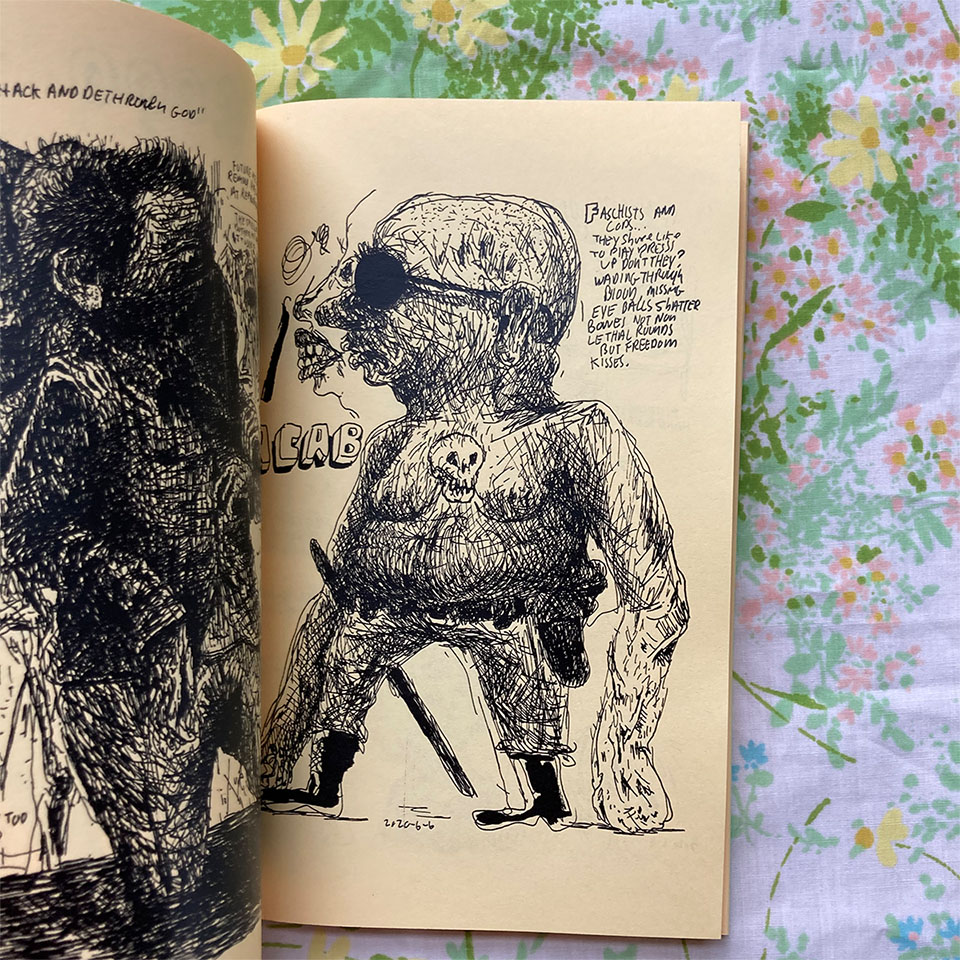 HACK AND DETHRONE GOD"
FUTURE
TOO
ACAB
FASCHISTS AND
COPS...
THEY SHURE LIKE
TO PLAY DRESS
UP DON'T THEY?
WADING THROUGH
BLOOD MISSING
EYE BALLS SHATTER
BONES NOT NON
LETHAL ROUNDS
BUT FREEDOM
KISSES.
2020-6-6